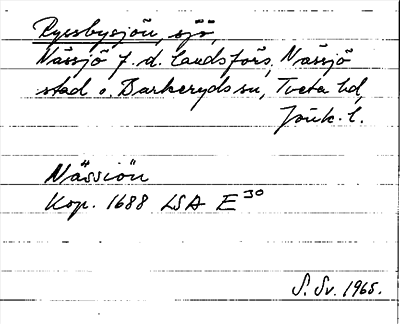 Ryssbysjön, sjö,
Nässjö f. d. landsförs., Nässjö
stad o. Barkeryds sn, Tveta hd,
Jönk. l.
Nässiön
Kop. 1688 LSA E 30
S. Sv. 1965.